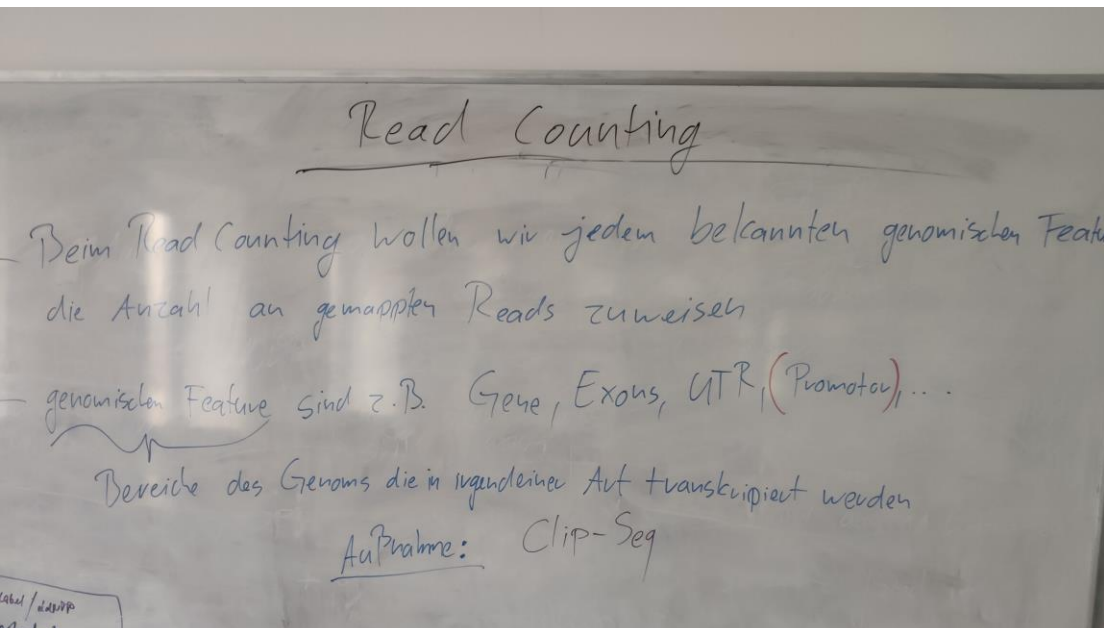 Read Counting
– Beim Read Counting wollen wir jedem bekannten genomischen Featu
die Anzahl an gemappten Reads zuweisen
– genomischen Feature sind z.B. Gene, Exons, UTR, (Promotor), ...
Bereiche des Genoms die in irgendeiner Art transkripiert werden
Außnahme: Clip-Seq